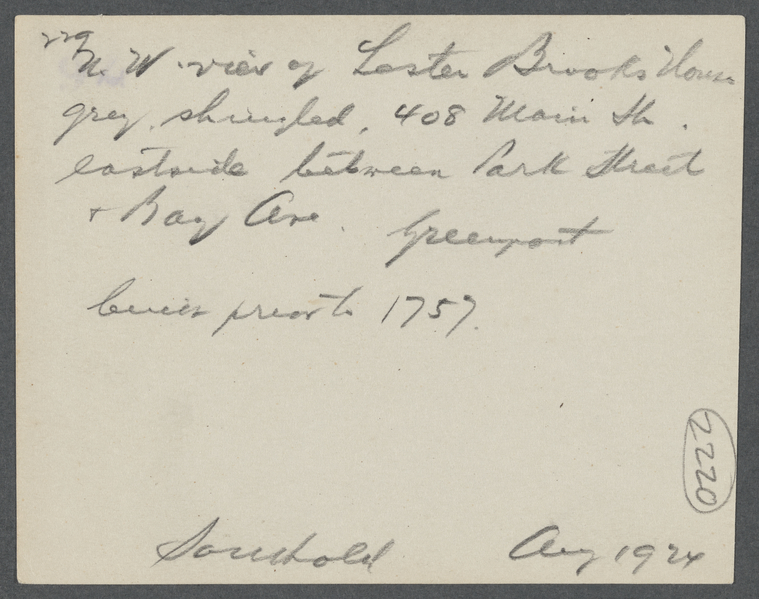 229
N. W. view of Lester Brooks House
grey, shingled, 408 Main St.
eastside between Park Street
+ Bay Ave. Greenport
built prior to 1757.
2220
Southold Aug 1924